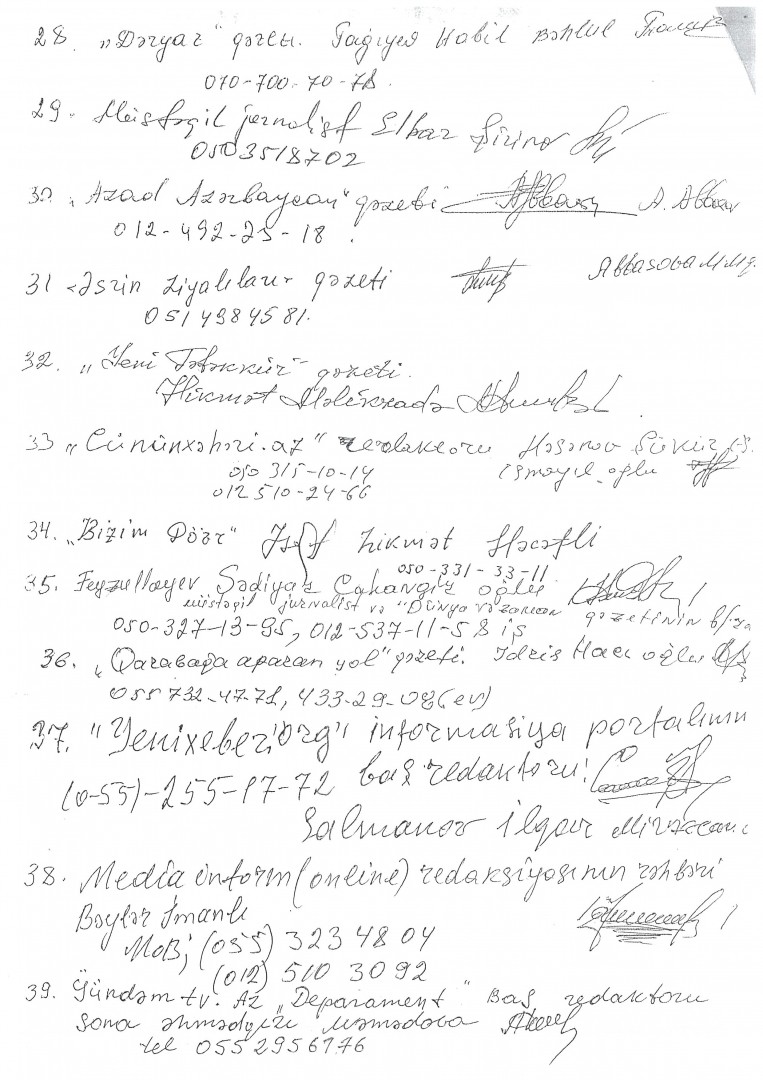 28. "Dəryaz" qəzeti. Tağıyev Habil Bəhlul
070-700-70-78.
29. Müstəqil jurnalist Elbar Şirinov
0503518702
30. "Azad Azərbaycan" qəzeti A. Abbasov
012-492-25-18.
31 "Əsrin ziyalıları" qəzeti Abbasova M.M.
0514984581.
32. "Yeni Təfəkkür" qəzeti.
Hikmət Məlikzadə
33 "Gününxəbəri.az" redaktoru Həsənov Şükür
050 315-10-14 ismayıl oğlu
012 510-24-66
34. "Bizim Dövr" Hikmət
050-331-33-11
35. Feyzullayev Sədiyar Cahangir oğlu
müstəqil jurnalist və "Dünya və zaman" qəzetinin
050-327-13-95, 012-537-11-58 iş
36. "Qarabağa aparan yol" qəzeti. İdris Hacı oğlu
055 732-47-78, 433-29-08 (ev)
37. "Yenixeber.org" informasiya portalının
(0-55)-255-17-72 baş redaktoru:
Salmanov ilqar
38. Media inform (online) redaksiyasının rəhbəri
Bəylər İmanlı
Mob; (055) 323 48 04
(012) 510 30 92
39. Gündəm tv. Az "Deparament" Baş redaktoru
Sona əhmədqızı Məmədova
tel 055 295 61 76